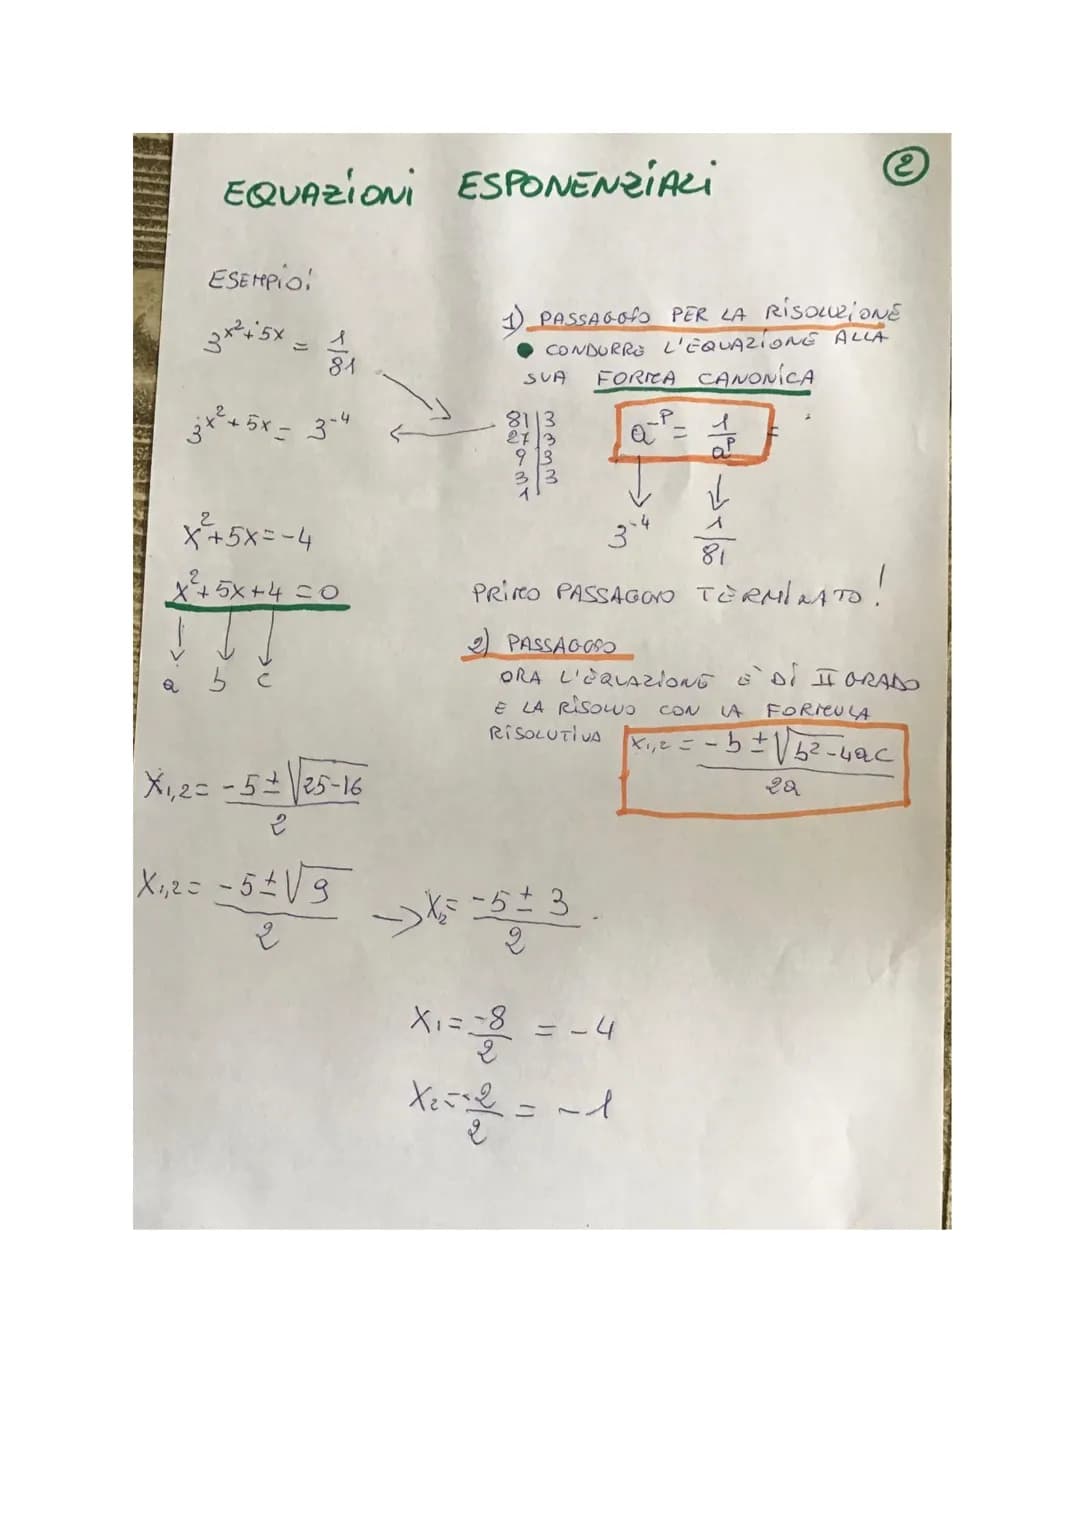 EQUAZIONI ESPONENZIALI
2
ESEMPIO:
3^{x²+5x} = 1/81
3^{x²+5x} = 3^{-4}
x²+5x=-4
x²+5x+4=0
a b c
x₁,₂= -5±√25-16 / 2
x₁,₂= -5±√9 / 2 → x₂= -5±3 / 2
x₁= -8/2 = -4
x₂= -2/2 = -1
1) PASSAGGIO PER LA RISOLUZIONE
CONDURRE L'EQUAZIONE ALLA
SUA FORMA CANONICA
81|3
27|3
9|3
3|3
1|
a^{-P} = 1/a^P =
3^{-4} 1/81
PRIMO PASSAGGIO TERMINATO!
2) PASSAGGIO
ORA L'EQUAZIONE È DI II GRADO
E LA RISOLVO CON LA FORMULA
RISOLUTIVA x₁,₂ = -b±√b²-4ac / 2a